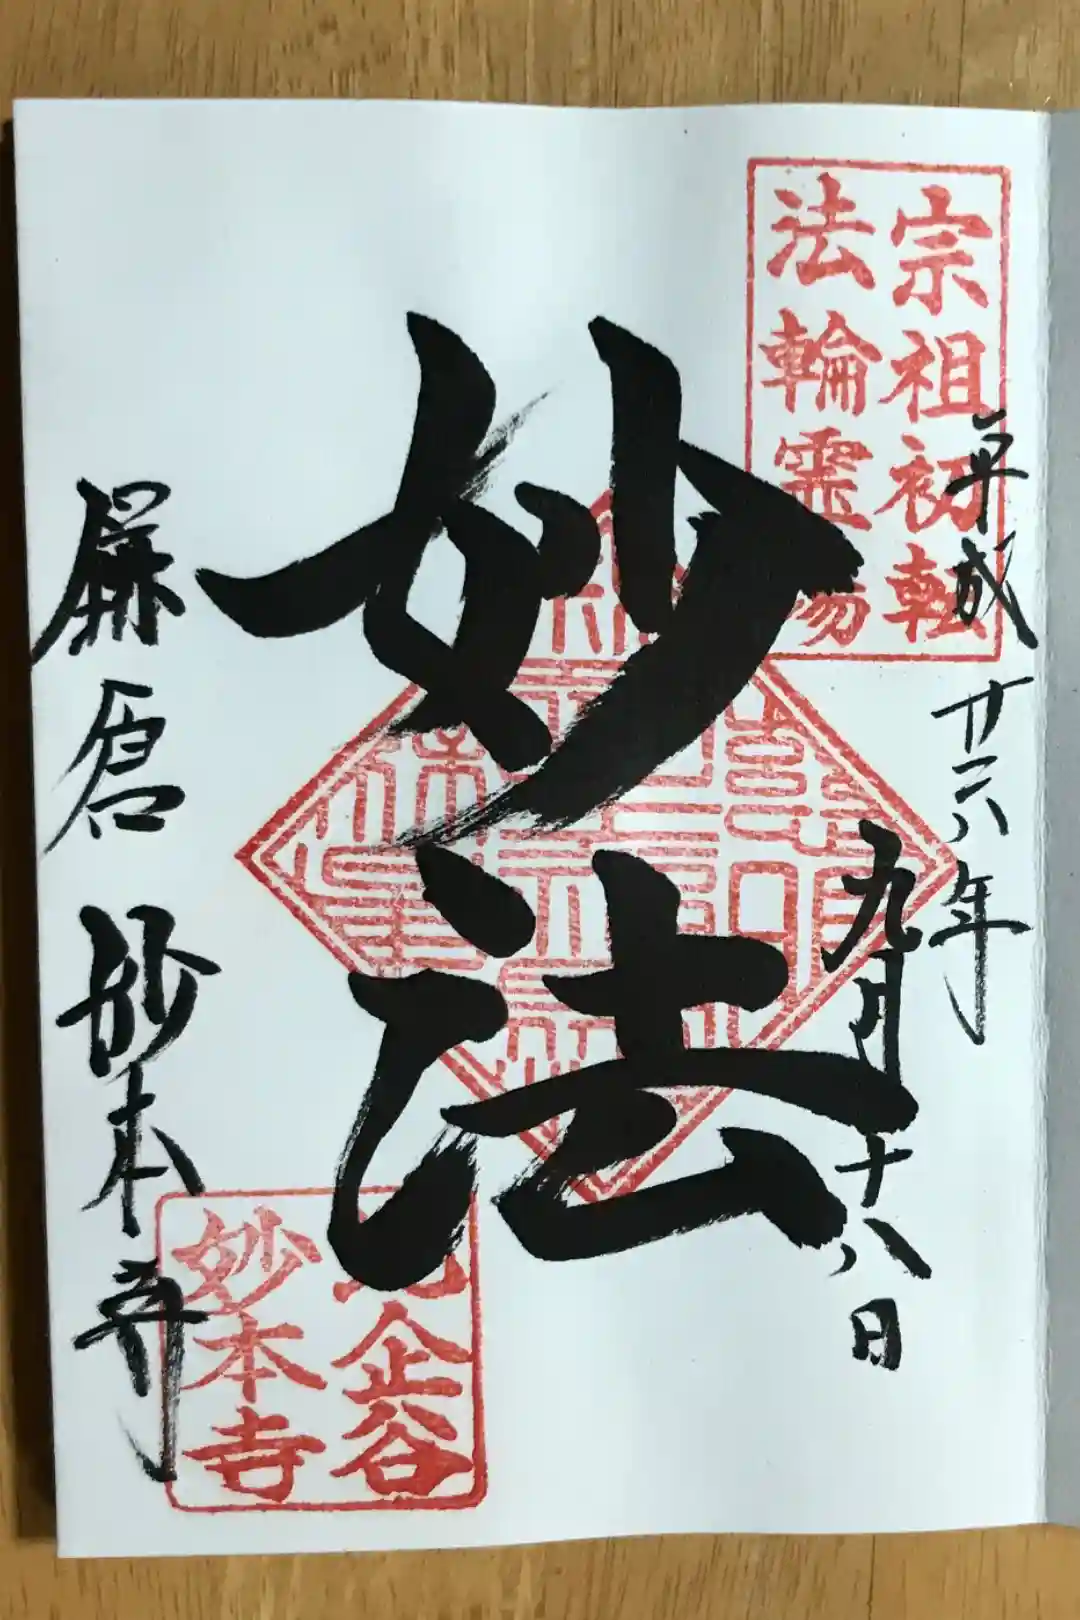 宗祖初転
法輪霊場
平成廿六年
九月十八日
妙法
鎌倉妙本寺
比企谷
妙本寺